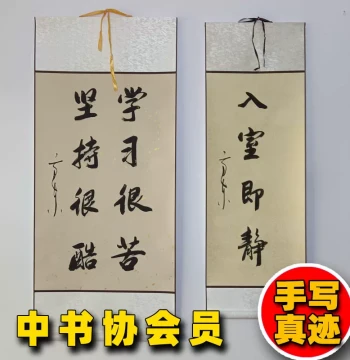 学习很苦
坚持很酷
入室即静
手写
真迹
中书协会员